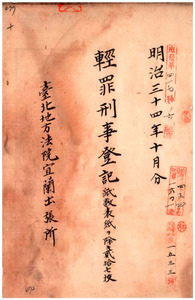 明治三十四年十月分
輕罪刑事登記 紙数表紙ヲ除キ貳拾七枚
臺北地方法院宜蘭出張所